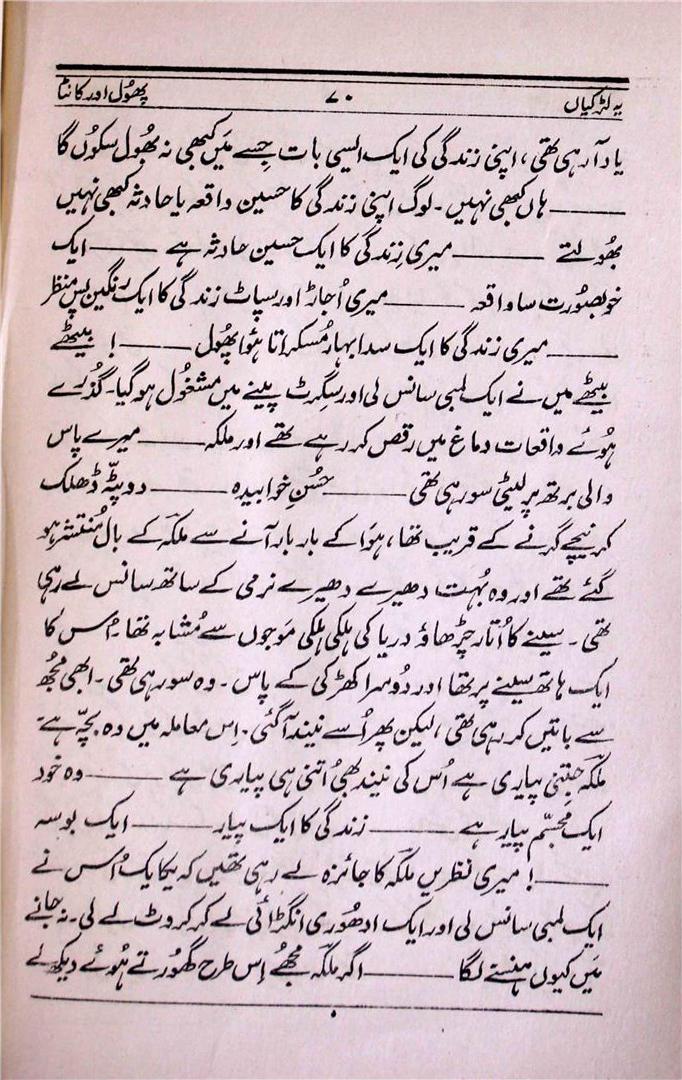 یہ لڑکیاں ۷۰ پھُول اور کانٹا
یاد آ رہی تھی، اپنی زندگی کی ایک ایسی بات جِسے مَیں کبھی نہ بھُول سکوُں گا
——— ہاں کبھی نہیں ۔ لوگ اپنی زندگی کا حسین واقعہ یا حادثہ کبھی نہیں
بھُولتے ——— میری زِندگی کا ایک حسین حادثہ ہے ——— ایک
خوبصُورت سا واقعہ ——— میری اُجاڑ اور سپاٹ زندگی کا ایک رنگین پس منظر
——— میری زندگی کا ایک سدا بہار مُسکراتا ہُوا پھُول ——— ! بیٹھے
بیٹھے میں نے ایک لمبی سانس لی اور سگرٹ پینے میں مشغُول ہو گیا۔ گذرے
ہُوئے واقعات دماغ میں رقص کر رہے تھے اور ملکہ ——— میرے پاس
والی برتھ پر لیٹی سو رہی تھی ——— حُسنِ خوابیدہ ——— دوپٹّہ ڈھلک
کر نیچے گرنے کے قریب تھا، ہَوا کے بار بار آنے سے ملکہ کے بال مُنتشر ہو
گئے تھے اور وہ بُہت دھیرے دھیرے نرمی کے ساتھ سانس لے رہی
تھی ۔ سینے کا اُتار چڑھاؤ دریا کی ہلکی ہلکی مَوجوں سے مُشابہ تھا۔ اُس کا
ایک ہاتھ سینے پر تھا اور دُوسرا کھڑکی کے پاس ۔ وہ سو رہی تھی ۔ ابھی مجُھ
سے باتیں کر رہی تھی، لیکن پھر اُسے نیند آ گئی ۔ اِس معاملہ میں وہ بچّہ ہے۔
ملکہ جتنی پیاری ہے اُس کی نیند بھی اُتنی ہی پیاری ہے ——— وہ خود
ایک مجسّم پیار ہے ——— زندگی کا ایک پیار ——— ایک بوسہ
——— ! میری نظریں ملکہ کا جائزہ لے رہی تھیں کہ یکایک اُس نے
ایک لمبی سانس لی اور ایک ادھُوری انگڑائی لے کر کروٹ لے لی۔ نہ جانے
مَیں کیوں ہنسنے لگا ——— اگر ملکہ مجُھے اِس طرح گھُورتے ہُوئے دیکھ لے